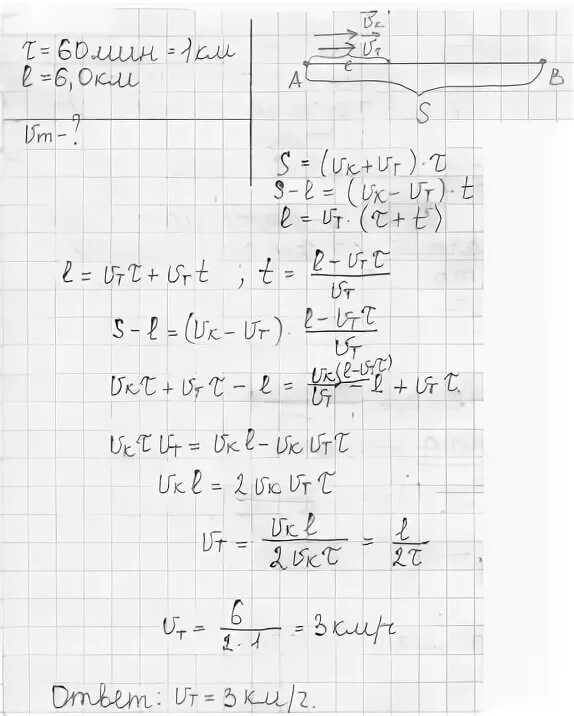 τ = 60 мин = 1 км
l = 6,0 км
Vт - ?
V⃗к
V⃗т
A c B
S
S = (Vк + Vт) · τ
S - l = (Vк - Vт) · t
l = Vт · (τ + t)
l = Vтτ + Vтt ; t = (l - Vтτ)/Vт
S - l = (Vк - Vт) · (l - Vтτ)/Vт
Vкτ + Vтτ - l = Vк(l - Vтτ)/Vт - l + Vтτ
VкτVт = Vкl - VкVтτ
Vкl = 2VкVтτ
Vт = Vкl/2Vкτ = l/2τ
Vт = 6/2·1 = 3 км/ч
Ответ: Vт = 3 км/ч.